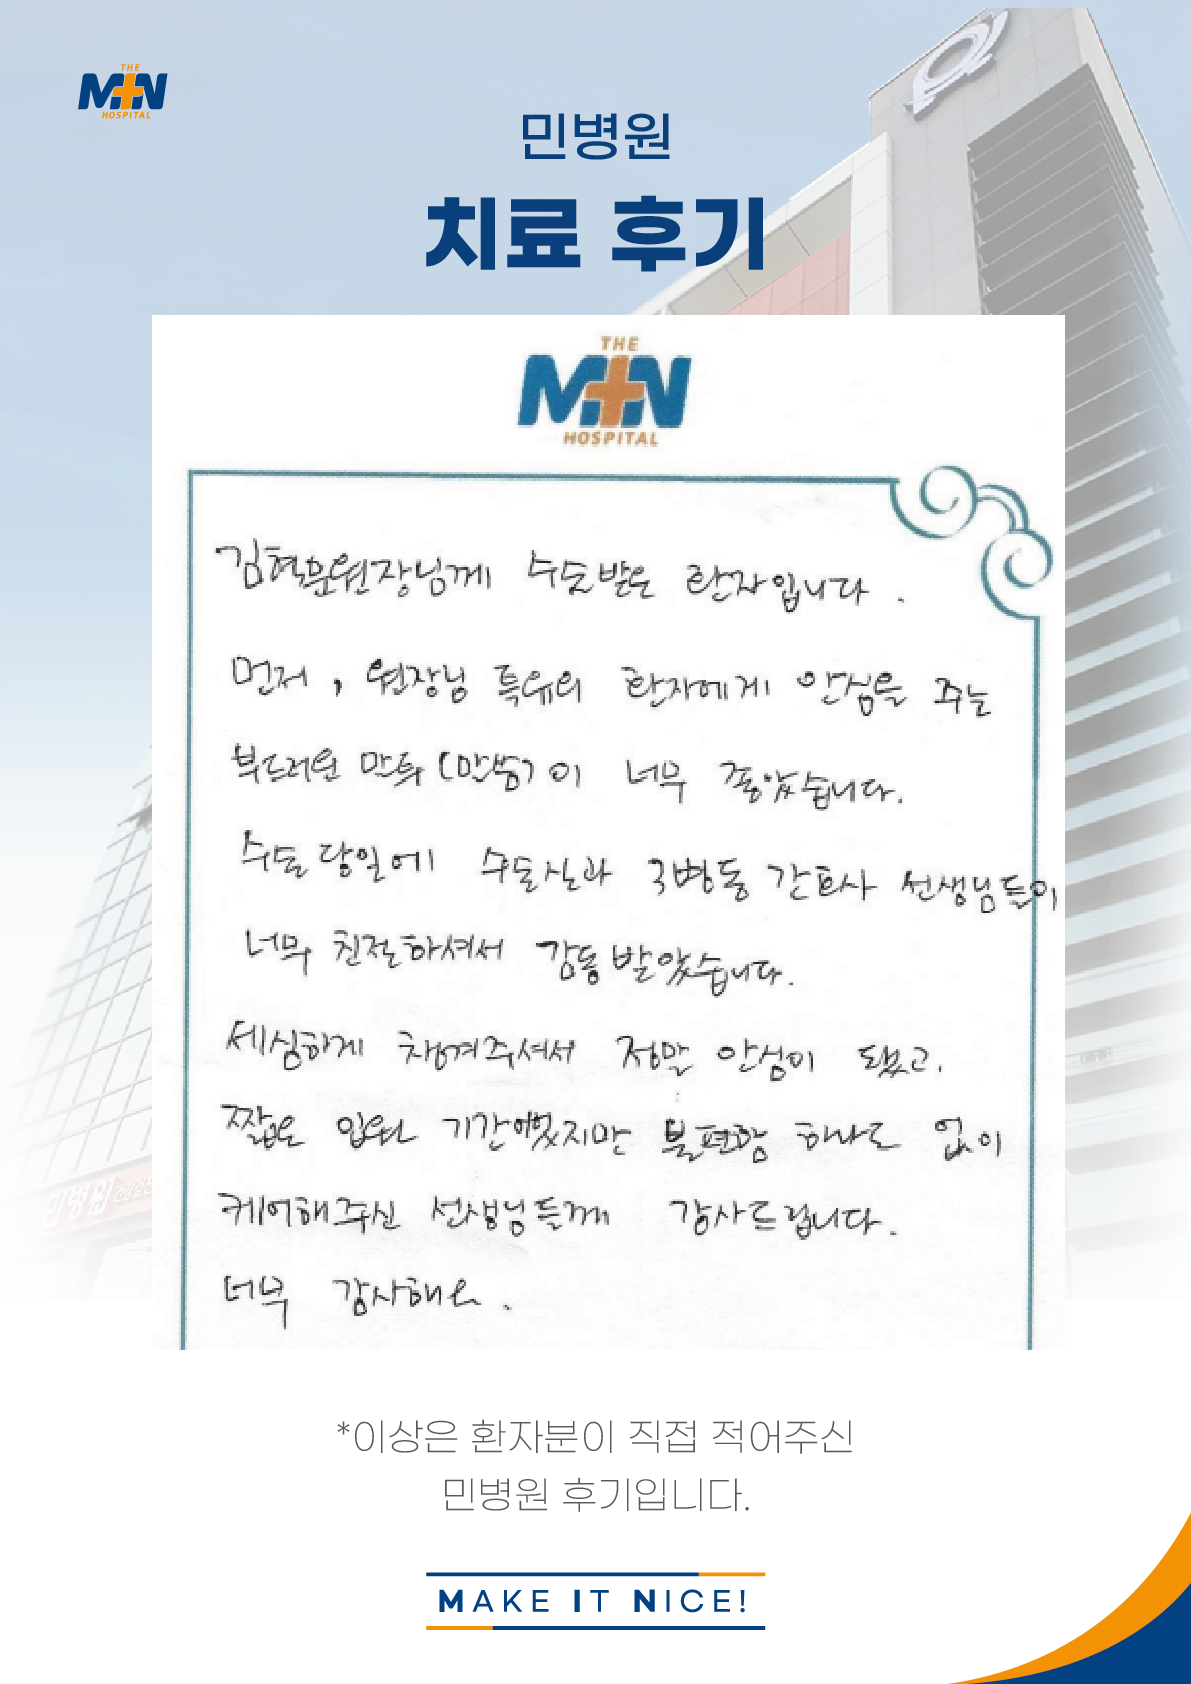 THE
MIN
HOSPITAL
민병원
치료 후기
THE
MIN
HOSPITAL
김현문원장님께 수술받은 환자입니다.
먼저, 원장님 특유의 환자에게 안심을 주는
부드러운 말투(말씀)이 너무 좋았습니다.
수술 당일에 수술실과 3병동 간호사 선생님들이
너무 친절하셔서 감동 받았습니다.
세심하게 챙겨주셔서 정말 안심이 됐고,
짧은 입원 기간이었지만 불편함 하나도 없이
케어해주신 선생님들께 감사드립니다.
너무 감사해요.
민병원
*이상은 환자분이 직접 적어주신
민병원 후기입니다.
MAKE IT NICE!